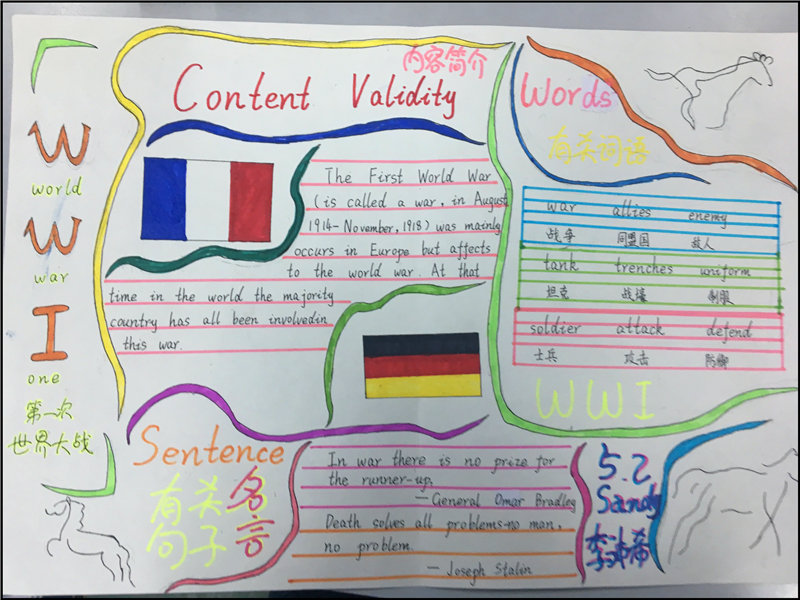 W
world
W
war
I
one
第一次
世界大战
内容简介
Content Validity
The First World War
(is called a war, in August
1914-November, 1918) was mainly
occurs in Europe but affects
to the world war. At that
time in the world the majority
country has all been involvedin
this war.
Words
有关词语
war allies enemy
战争 同盟国 敌人
tank trenches uniform
坦克 战壕 制服
soldier attack defend
士兵 攻击 防御
WWI
Sentence
有关名言
句子
In war there is no prize for
the runner-up.
—General Omar Bradley
Death solves all problems-no man,
no problem.
—Joseph Stalin
5.2
Sandy